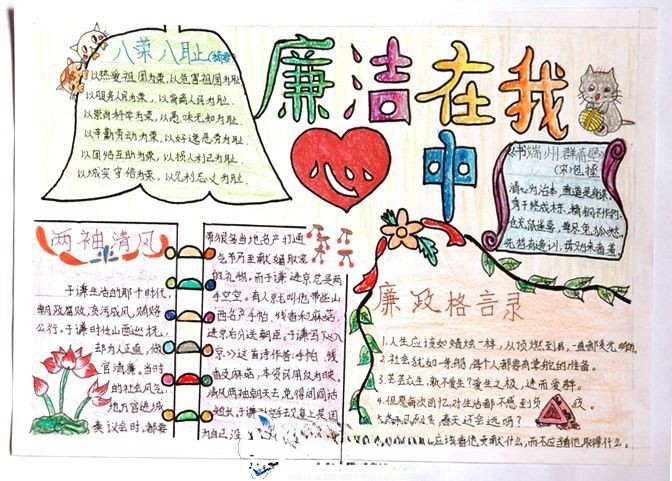 廉洁在我
心中
八荣八耻
以热爱祖国为荣,以危害祖国为耻
以服务人民为荣,以背离人民为耻
以崇尚科学为荣,以愚昧无知为耻
以辛勤劳动为荣,以好逸恶劳为耻
以团结互助为荣,以损人利己为耻
以诚实守信为荣,以见利忘义为耻
书端州郡斋壁
(宋)包拯
清心为治本,直道是身谋。
秀干终成栋,精钢不作钩。
两袖清风
于谦生活的那个时代,
朝政腐败,贪污成风,贿赂
公行。于谦时任山西巡抚,
却为人正直,做
官清廉。当时
的社会风气,
地方官进城
奏议会时,都要
带很多当地名产打通
的礼物。而于谦进京总是两
手空空。有人劝他带些山
西名产手帕、线香和麻菇,
进京后分送朝臣。于谦写下《入
京》这首诗作答:手帕
菇及麻菇,本资民用反为殃。
清风两袖朝天去,免得闾阎话
短长。
为自己没
廉政格言录
1.人生应该如蜡烛一样,从顶燃到底,一直都是光明的。
2.社会犹如一条船,每个人都要有掌舵的准备。
3.芸芸众生,孰不爱生?爱生之极,进而爱群。
4.但愿每次回忆,对生活都不感到负疚。
春天还会远吗?
应该看他贡献什么,而不应当看他取得什么。